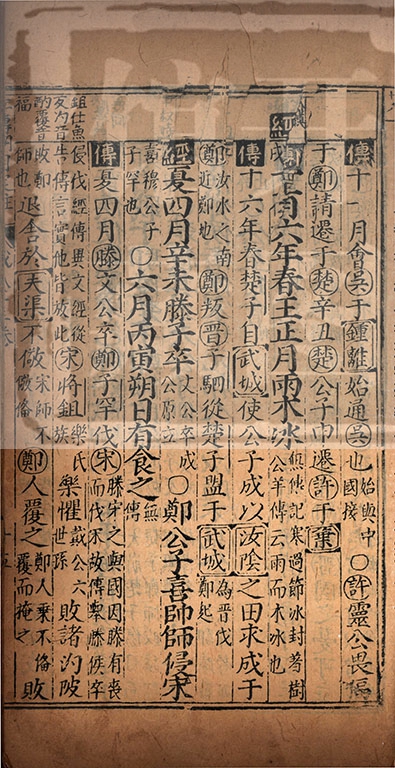 傳十一月會吳于鍾離始通吳也始與中國接○許靈公畏偪
于鄭請遷于楚辛丑楚公子申遷許于葉
六年春王正月雨木冰無傳記寒過節冰封著樹公羊傳云雨而木冰也
傳十六年春楚子自武城使公子成以汝陰之田求成于
鄭汝水之南近鄭也鄭叛晉子駟從楚子盟于武城為晉伐鄭起
經夏四月辛未滕子卒文公卒成公原立○鄭公子喜帥師侵宋
喜穆公子子罕也○六月丙寅朔日有食之無傳
傳夏四月滕文公卒鄭子罕伐宋滕宋之與國因滕有喪而伐宋故傳舉滕侯卒
侵伐經傳異文經從告傳言實他皆放此宋將鉏樂氏族樂懼戴公六世孫敗諸汋陂
師也退舍於夫渠不儆宋師不儆備鄭人覆之鄭人乘不備覆而掩之敗